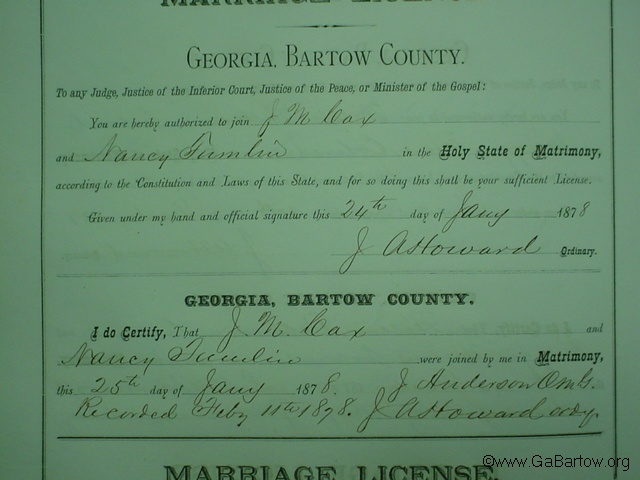 MARRIAGE LICENSE
GEORGIA, BARTOW COUNTY.
To any Judge, Justice of the Inferior Court, Justice of the Peace, or Minister of the Gospel:
You are hereby authorized to join J M Cox
and Nancy Tumlin in the Holy State of Matrimony,
according to the Constitution and Laws of this State, and for so doing this shall be your sufficient License.
Given under my hand and official signature this 24th day of Jany 1878
J A Howard Ordinary.
GEORGIA, BARTOW COUNTY.
I do Certify, That J. M. Cox and
Nancy Tumlin were joined by me in Matrimony,
this 25th day of Jany 1878. J Anderson
Recorded Feby 11th 1878. J A Howard ordy.
MARRIAGE LICENSE.
©www.GaBartow.org